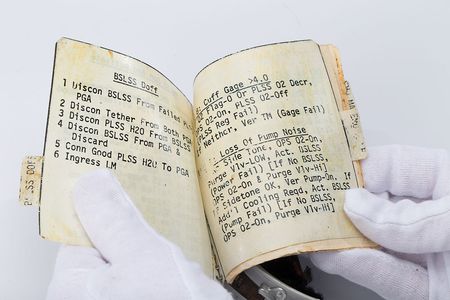 BSLSS Doff
1 Discon BSLSS From Failed PLSS
PGA
2 Discon Tether From Both PGA
3 Discon PLSS H2O From BSLSS
4 Discon BSLSS From PGA &
Discard
5 Conn Good PLSS H2O To PGA
6 Ingress LM
BSLSS DOFF
Cuff Gage >4.0
Flag-O Or PLSS O2 Decr,
O2-On, PLSS O2-Off
PLSS Reg Fail)
Neither, Ver TM (Gage Fail)
Loss Of Pump Noise
Side Tone, OPS O2-On,
Purge Vlv-LOW, Act. BSLSS
(Power Fail) [If No BSLSS,
OPS O2-On & Purge Vlv-Hi]
Sidetone OK, Ver Pump-On, If
Add'l Cooling Reqd, Act. BSLSS
(Pump Fail) [If No BSLSS,
OPS O2-On, Purge Vlv-Hi]